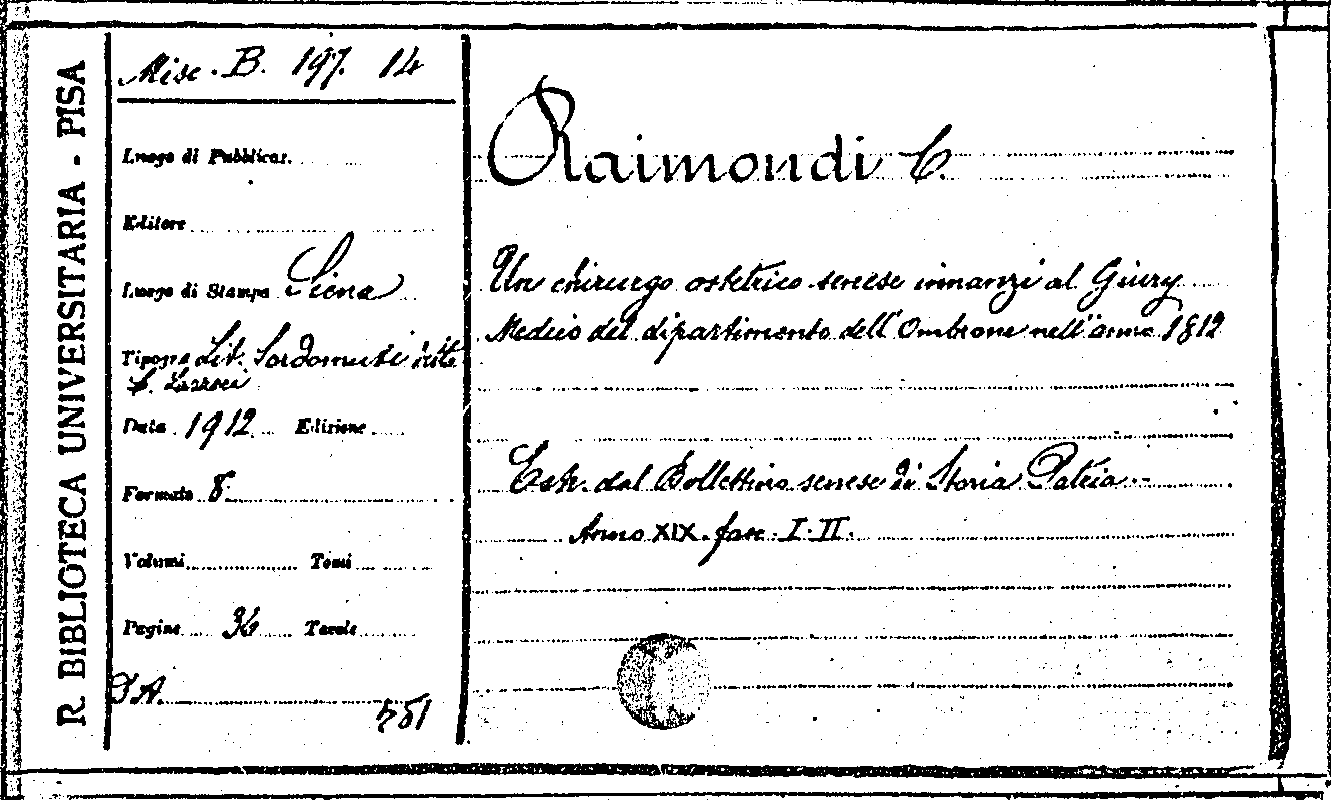 R. BIBLIOTECA UNIVERSITARIA - PISA
Misc. B. 197. 14
Luogo di Pubblicaz.
Editore
Luogo di Stampa Siena
Tipogra Lit. Sordomuti ditta
L. Lazzeri
Data 1912 Edizione
Formato 8.
Volumi Tomi
Pagine 36 Tavole
D.A.
751
Raimondi C.
Un chirurgo ostetrico senese innanzi al Giury
Medico del dipartimento dell'Ombrone nell'anno 1812
Estr. dal Bollettino senese di Storia Patria
Anno XIX. fasc. I-II.